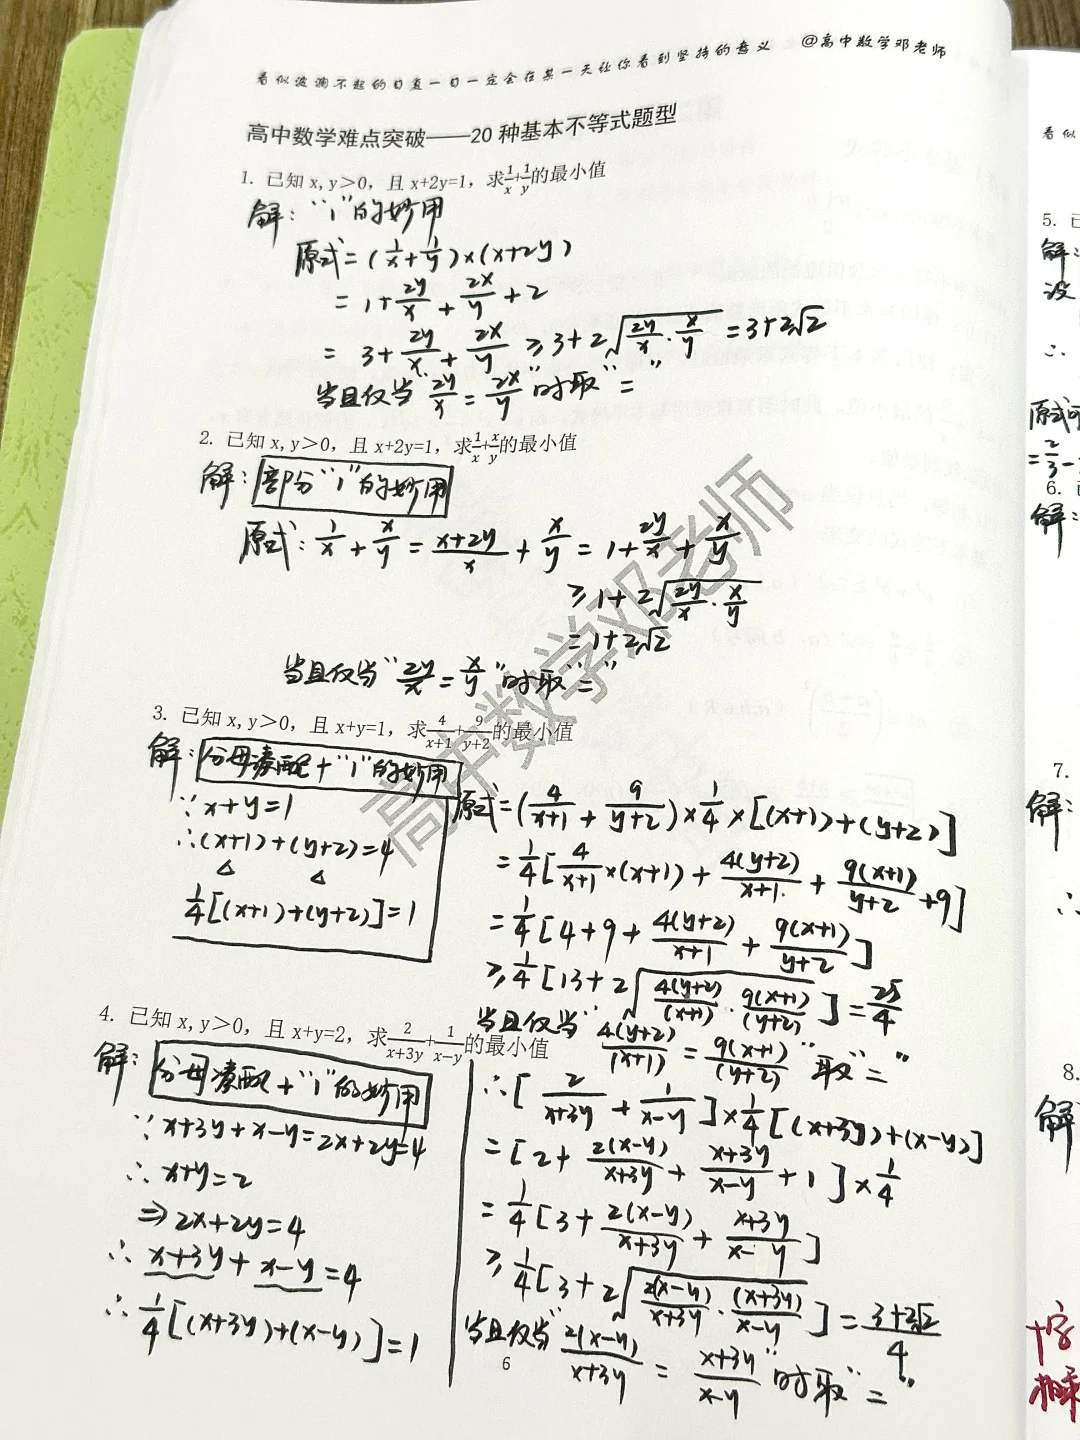 看似波澜不起的日复一日一定会在某一天让你看到坚持的意义 @高中数学邓老师
高中数学难点突破——20 种基本不等式题型
1. 已知 x, y＞0，且 x+2y=1，求1/x+1/y的最小值
解："1"的妙用
原式=(1/x+1/y)×(x+2y)
=1+2y/x+2x/y+2
= 3+2y/x+2x/y ≥3+2√(2y/x·x/y)=3+2√2
当且仅当 2y/x=2x/y"时取"="
2. 已知 x, y＞0，且 x+2y=1，求1/x+x/y的最小值
解：部分"1"的妙用
原式：1/x+x/y=(x+2y)/x+x/y=1+2y/x+x/y
≥1+2√(2y/x·x/y)
=1+2√2
当且仅当"2y/x=x/y"时取"="
3. 已知 x, y＞0，且 x+y=1，求4/(x+1)+9/(y+2)的最小值
解：分母凑配+"1"的妙用
∵x+y=1
∴(x+1)+(y+2)=4
1/4[(x+1)+(y+2)]=1
原式=(4/(x+1)+9/(y+2))×1/4×[(x+1)+(y+2)]
=1/4[4/(x+1)×(x+1)+4(y+2)/(x+1)+9(x+1)/(y+2)+9]
=1/4[4+9+4(y+2)/(x+1)+9(x+1)/(y+2)]
≥1/4[13+2√(4(y+2)/(x+1)·9(x+1)/(y+2))]=25/4
当且仅当"4(y+2)/(x+1)=9(x+1)/(y+2)"取"="
4. 已知 x, y＞0，且 x+y=2，求2/(x+3y)+1/(x−y)的最小值
解：分母凑配+"1"的妙用
∵x+3y+x-y=2x+2y=4
∴x+y=2
⇒2x+2y=4
∴x+3y+x-y=4
∴1/4[(x+3y)+(x-y)]=1
∴[2/(x+3y)+1/(x-y)]×1/4[(x+3y)+(x-y)]
=[2+2(x-y)/(x+3y)+(x+3y)/(x-y)+1]×1/4
=1/4[3+2(x-y)/(x+3y)+(x+3y)/(x-y)]
≥1/4[3+2√(2(x-y)/(x+3y)·(x+3y)/(x-y))]=(3+2√2)/4
当且仅当"2(x-y)/(x+3y)=(x+3y)/(x-y)"时取"="
6
高中数学邓老师
看似
5. 已
解：
原式可
=2/3-
6. 已
解：
7.
解：
∴
8.
解
十字
相乘